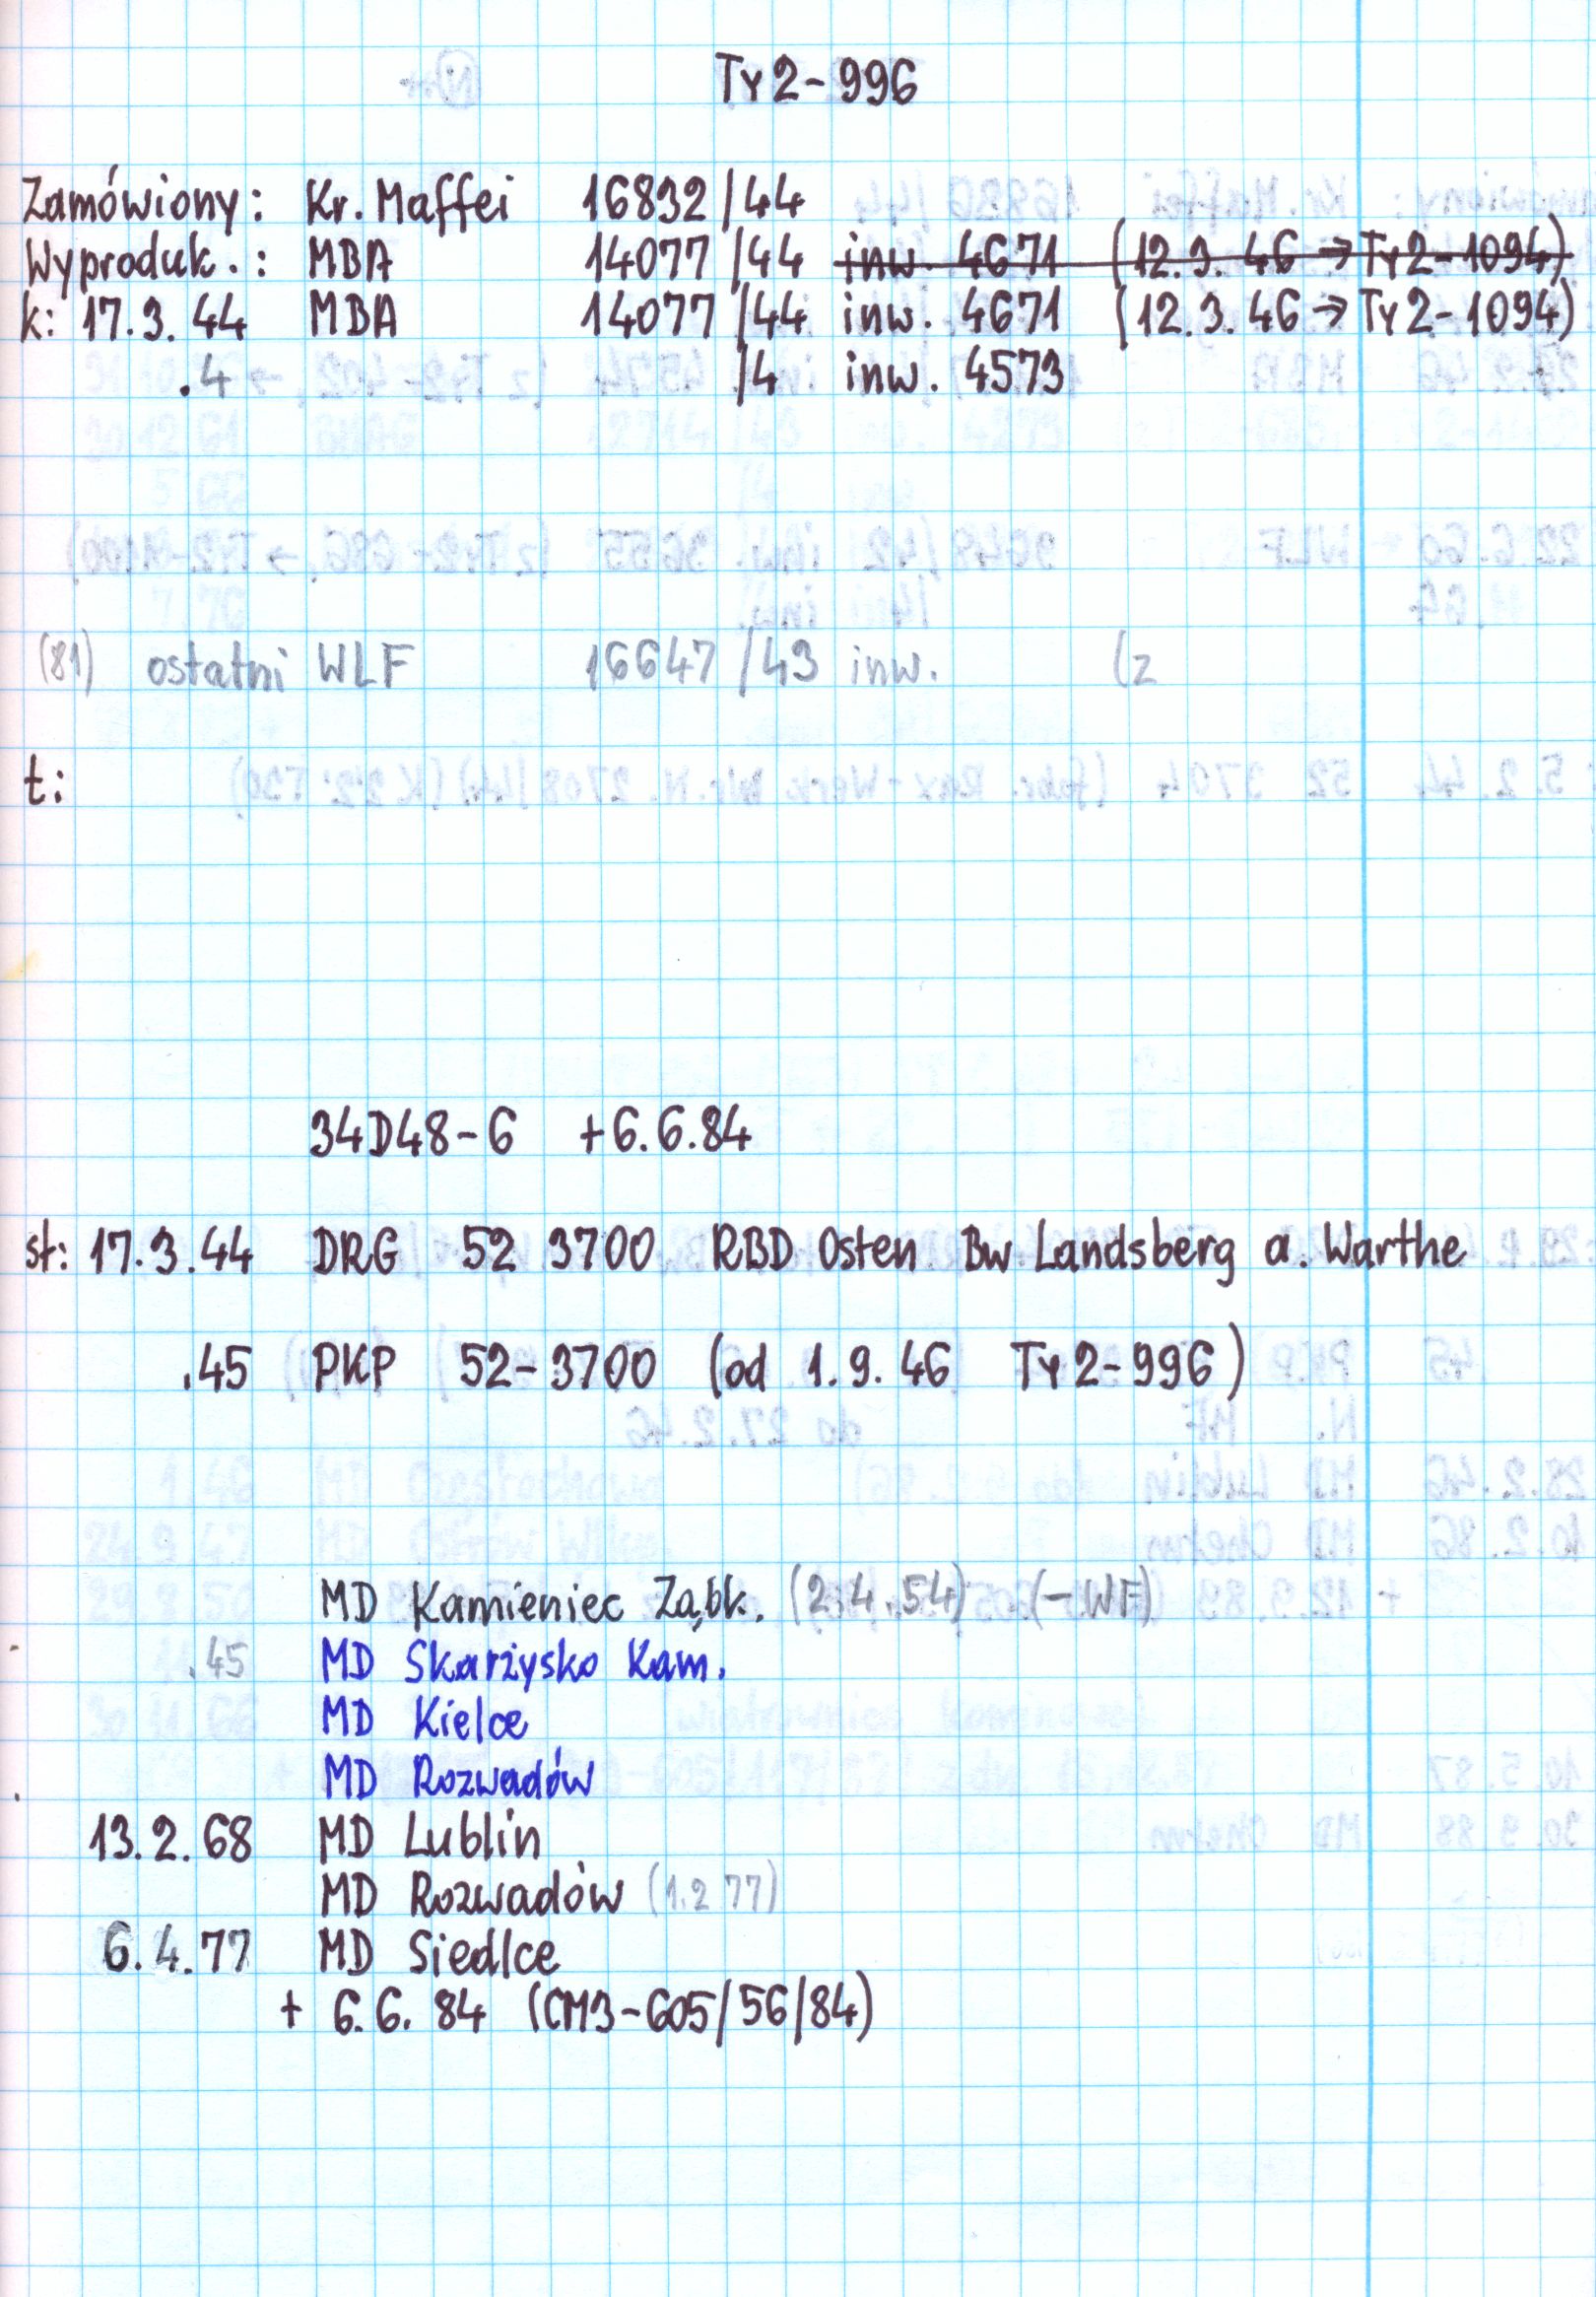 Ty2-996
Zamówiony: Kr. Maffei 16832/44
Wyproduk.: MBA 14077/44 inw. 4671 (12.3.46 → Ty2-1094)
k: 17.3.44 MBA 14077/44 inw. 4671 (12.3.46 → Ty2-1094)
.4 /4 inw. 4573
(81) ostatni WLF 16647/43 inw. (z
t:
34D48-6 +6.6.84
st: 17.3.44 DRG 52 3700 RBD Osten Bw Landsberg a. Warthe
.45 PKP 52-3700 (od 1.9.46 Ty2-996)
MD Kamieniec Ząbk. (2.4.54) (-WF)
.45 MD Skarżysko Kam.
MD Kielce
MD Rozwadów
13.2.68 MD Lublin
MD Rozwadów (1.2 77)
6.4.77 MD Siedlce
+ 6.6.84 (CM3-605/56/84)